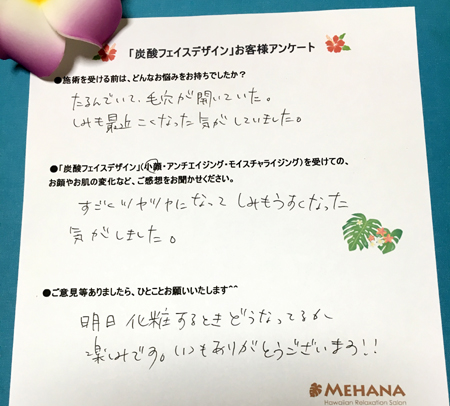 「炭酸フェイスデザイン」お客様アンケート
●施術を受ける前は、どんなお悩みをお持ちでしたか?
たるんでいて、毛穴が開いていた。
しみも最近こくなった気がしていました。
●「炭酸フェイスデザイン」(小顔・アンチエイジング・モイスチャライジング)を受けての、
お顔やお肌の変化など、ご感想をお聞かせください。
すごくツヤツヤになって しみもうすくなった
気がしました。
●ご意見等ありましたら、ひとことお願いいたします^^
明日 化粧するとき どうなってるか
楽しみです。いつもありがとうございます!!
MEHANA
Hawaiian Relaxation Salon